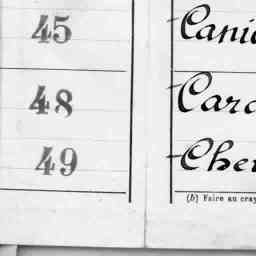 45 Canic
48 Card
49 Cher
(b) Faire au cray